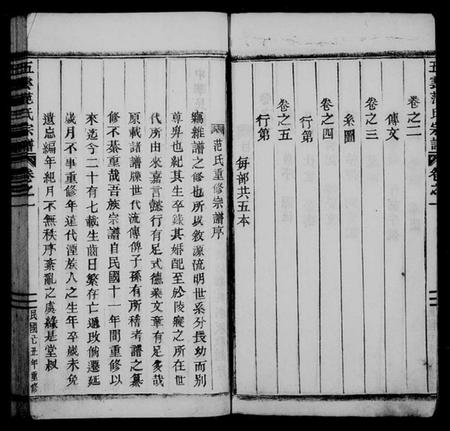 五雲范氏宗譜 卷之一
卷之二
傳文
卷之三
系圖
卷之四
行第
卷之五
行第
每部共五本
范氏重修宗譜序
竊維譜之修也所以敘源流明世系分長幼而別
尊卑也紀其生卒錄其婚配至於陵寢之所在世
代所由來嘉言懿行有足式德業文章有足多哉
原載諸譜牒世代流傳俾子孫有所稽考譜之纂
修不綦重哉吾族宗譜自民國十一年間重修以
來迄今二十有七載生齒日繁存亡遞改倘遷延
歲月不事重修年遠代湮族人之生年卒歲未免
遺忘編年紀月不無秩序紊亂之虞緣是堂叔
五雲范氏宗譜 卷之一
民國己丑年重修